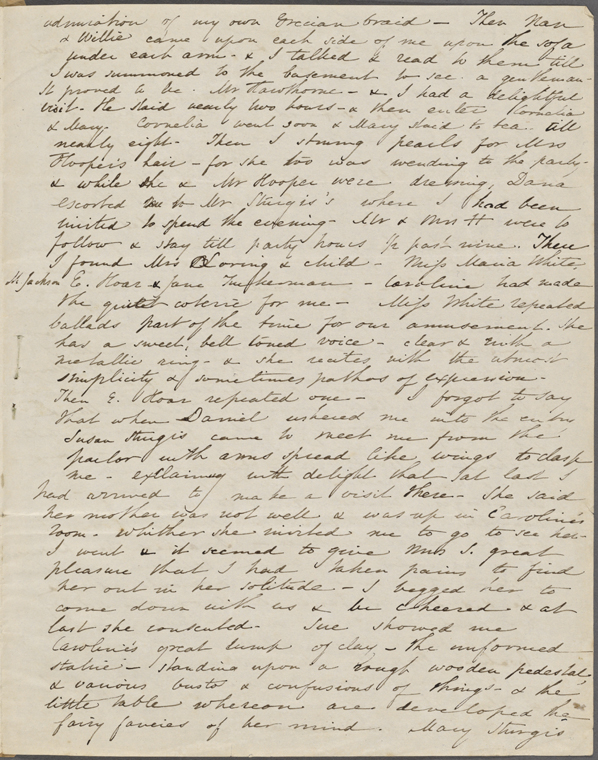 admiration of my own Grecian braid – Then Nan
& Willie came upon each side of me upon the sofa
under each arm – & I talked & read to them till
I was summoned to the basement to see a gentleman –
It proved to be Mr Hawthorne – & I had a delightful
visit. He staid nearly two hours – & then enter Cornelia
& Mary. Cornelia went soon & Mary staid to tea till
nearly eight – Then I strung pearls for Mrs
Hooper's hair – for she too was wending to the party –
& while she & Mr Hooper were dressing, Dana
escorted me to Mr Sturgis's where I had been
invited to spend the evening – Mr & Mrs H were to
follow & stay till party hours ½ past nine. There
I found Mrs Loring & child – Miss Maria White,
M. Jackson E. Hoar & Jane Tuckerman – Caroline had made
the quiet coterie for me – Miss White repeated
ballads part of the time for our amusement. She
has a sweet, bell toned voice – clear & with a
metallic ring – & she recites with the utmost
simplicity & sometimes pathos of expression –
Then E. Hoar repeated one – I forgot to say
that when Daniel ushered me into the entry
Susan Sturgis came to meet me from the
parlor with arms spread like wings to clasp
me – exclaiming with delight that at last I
had arrived to make a visit there – She said
her mother was not well & was up in Caroline's
room – whither she invited me to go to see her –
I went & it seemed to give Mrs S. great
pleasure that I had taken pains to find
her out in her solitude – I begged her to
come down with us & be cheered & at
last she consented – Sue showed me
Caroline's great lump of clay – the unformed
statue – standing upon a rough wooden pedestal,
& various busts & confusions of things – & the
little table whereon are developed the
fairy fancies of her mind. Mary Sturgis